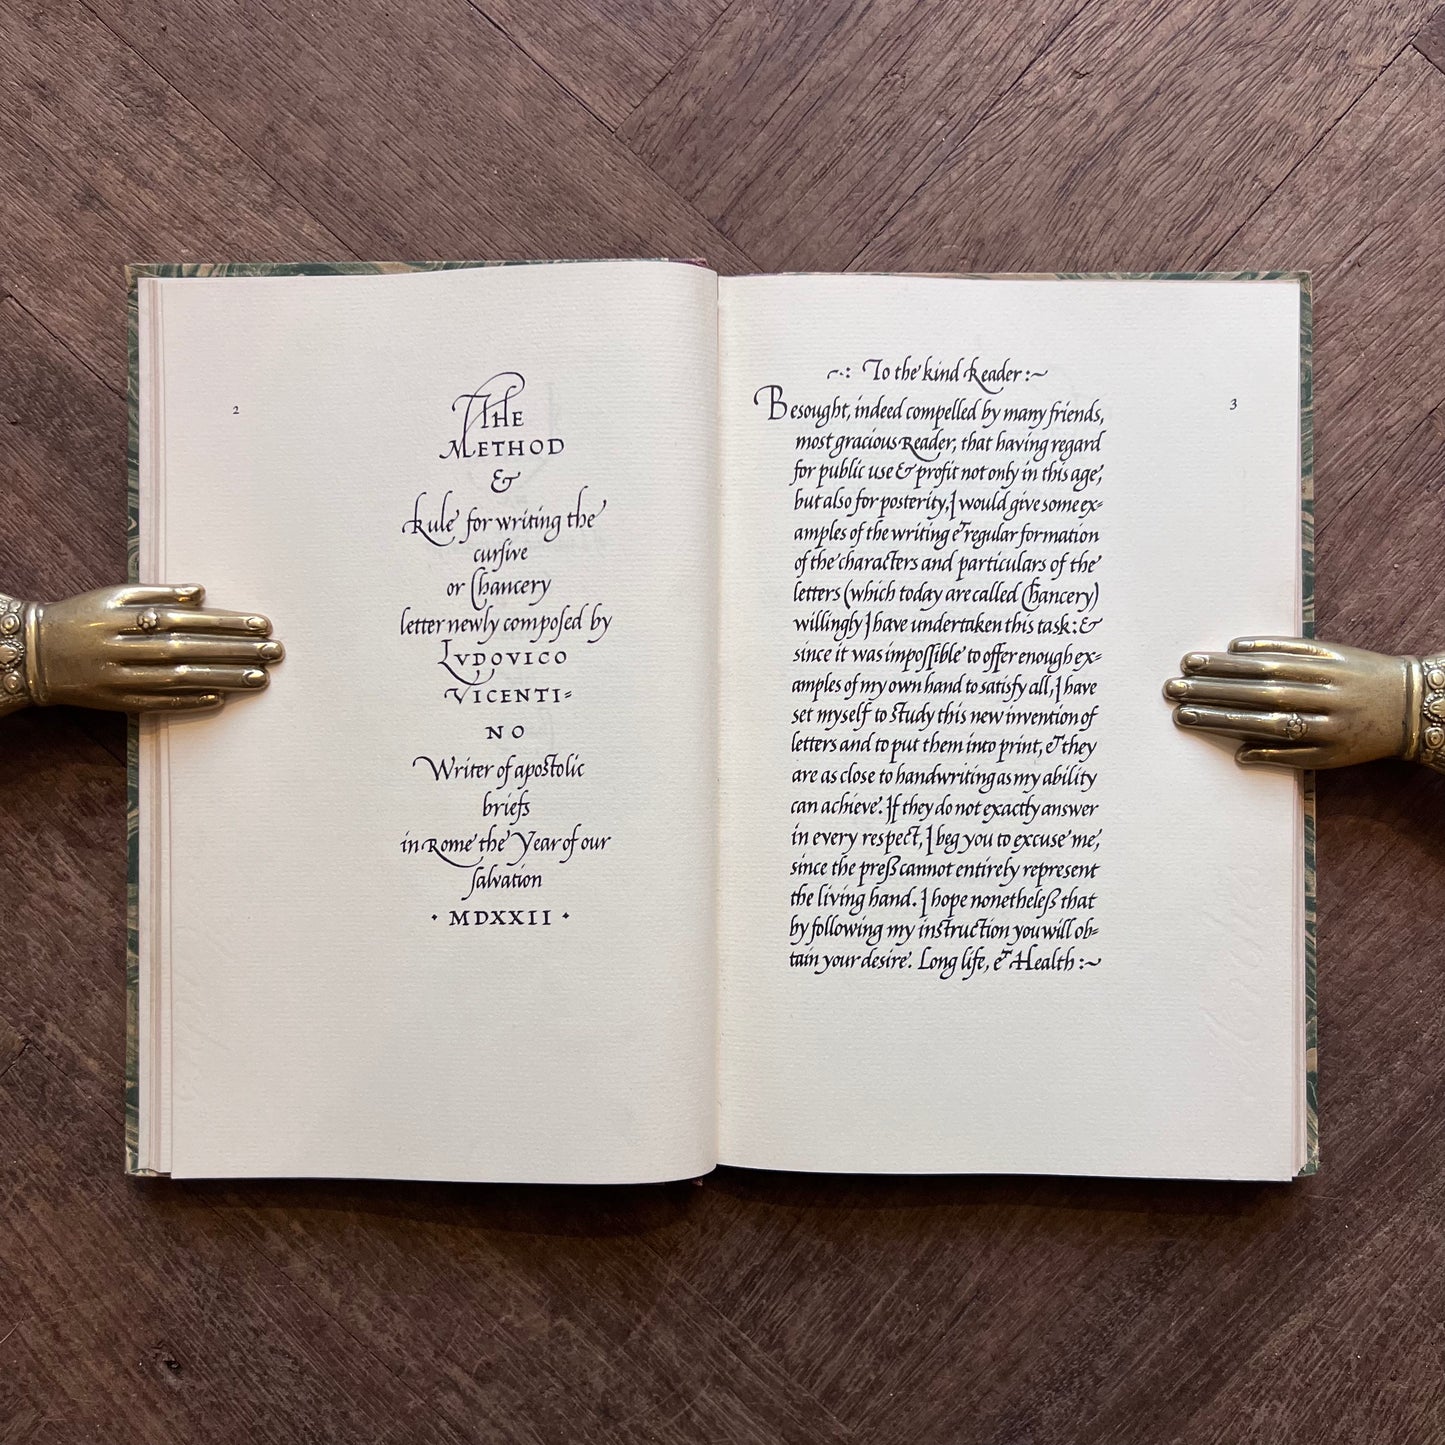 2
The
Method
&
Rule for writing the
cursive
or Chancery
letter newly composed by
LVDOVICO
VICENTI=
NO
Writer of apostolic
briefs
in Rome the Year of our
salvation
· MDXXII ·
3
~·: To the kind Reader :~
Besought, indeed compelled by many friends,
most gracious Reader, that having regard
for public use & profit not only in this age,
but also for posterity, I would give some ex=
amples of the writing & regular formation
of the characters and particulars of the
letters (which today are called Chancery)
willingly I have undertaken this task: &
since it was impossible to offer enough ex=
amples of my own hand to satisfy all, I have
set myself to study this new invention of
letters and to put them into print, & they
are as close to handwriting as my ability
can achieve. If they do not exactly answer
in every respect, I beg you to excuse me,
since the preß cannot entirely represent
the living hand. I hope nonetheleß that
by following my instruction you will ob=
tain your desire. Long life, & Health :~